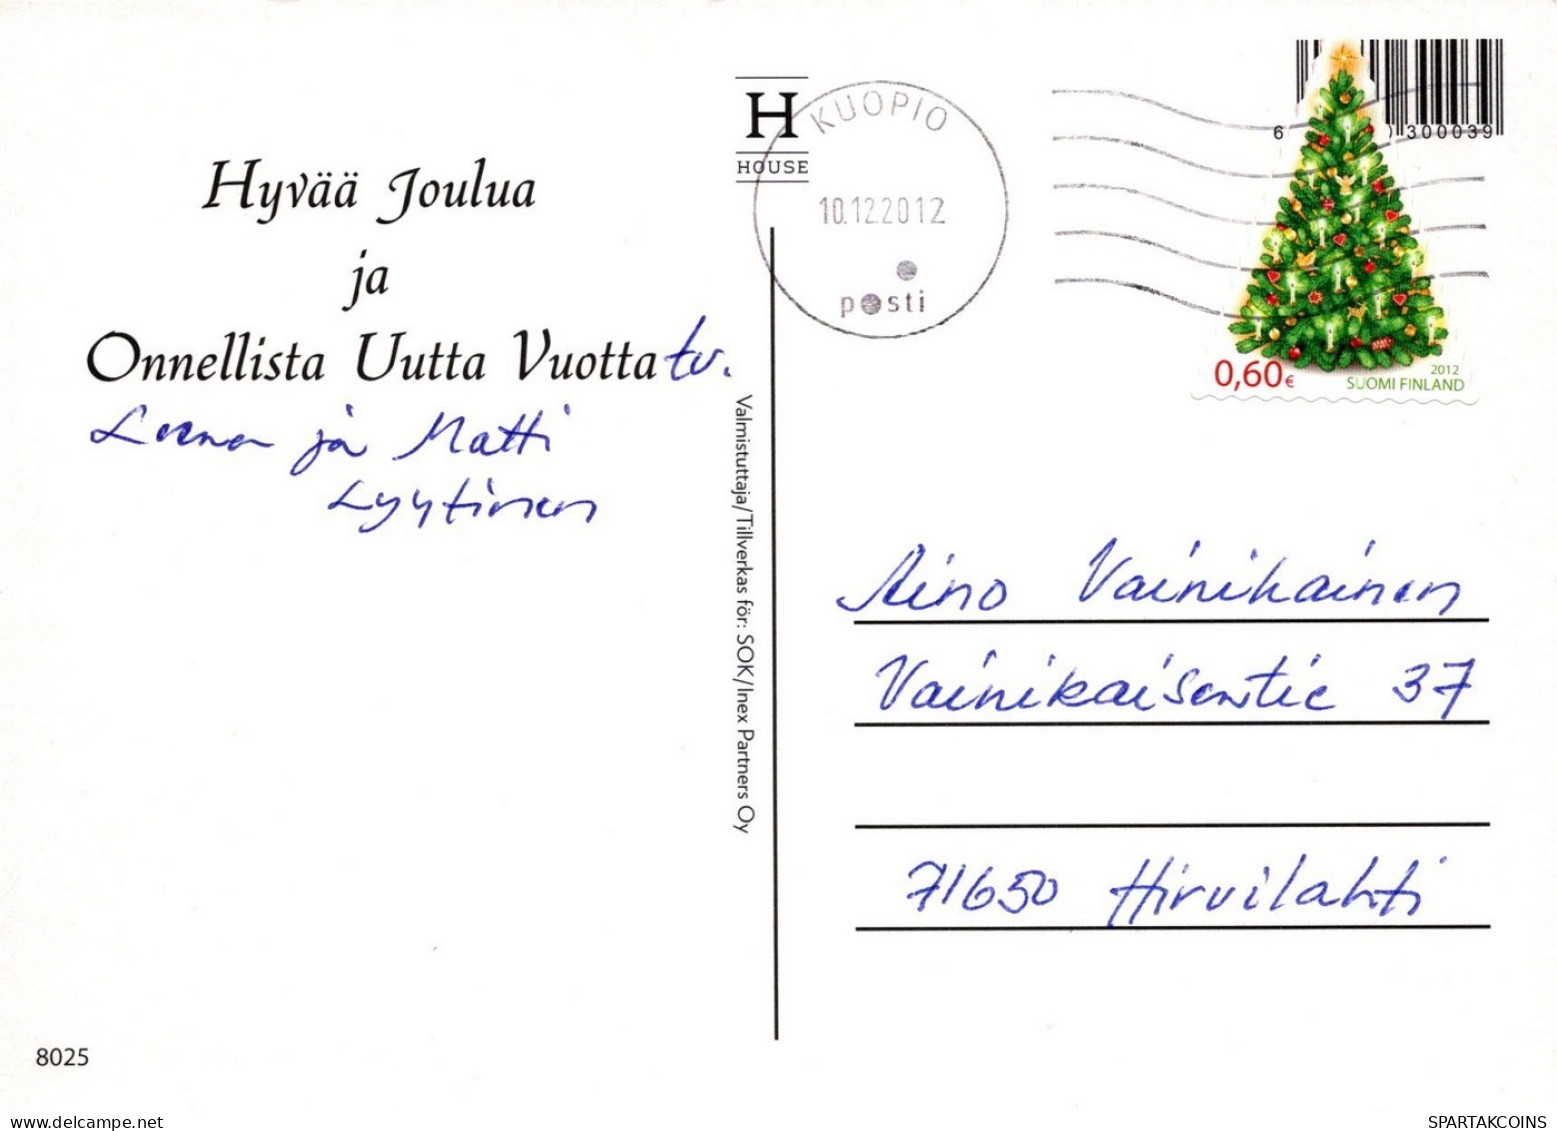 Hyvää Joulua
ja
Onnellista Uutta Vuotta tv.
Leena ja Matti
Lyytinen
8025
Valmistuttaja/Tillverkas för: SOK/Inex Partners Oy
H
HOUSE
KUOPIO
10.12.2012
posti
6 300039
0,60€
2012
SUOMI FINLAND
Aino Vainikainen
Vainikaisentie 37
71650 Hirvilahti
delcampe.net
SPARTAKCOINS